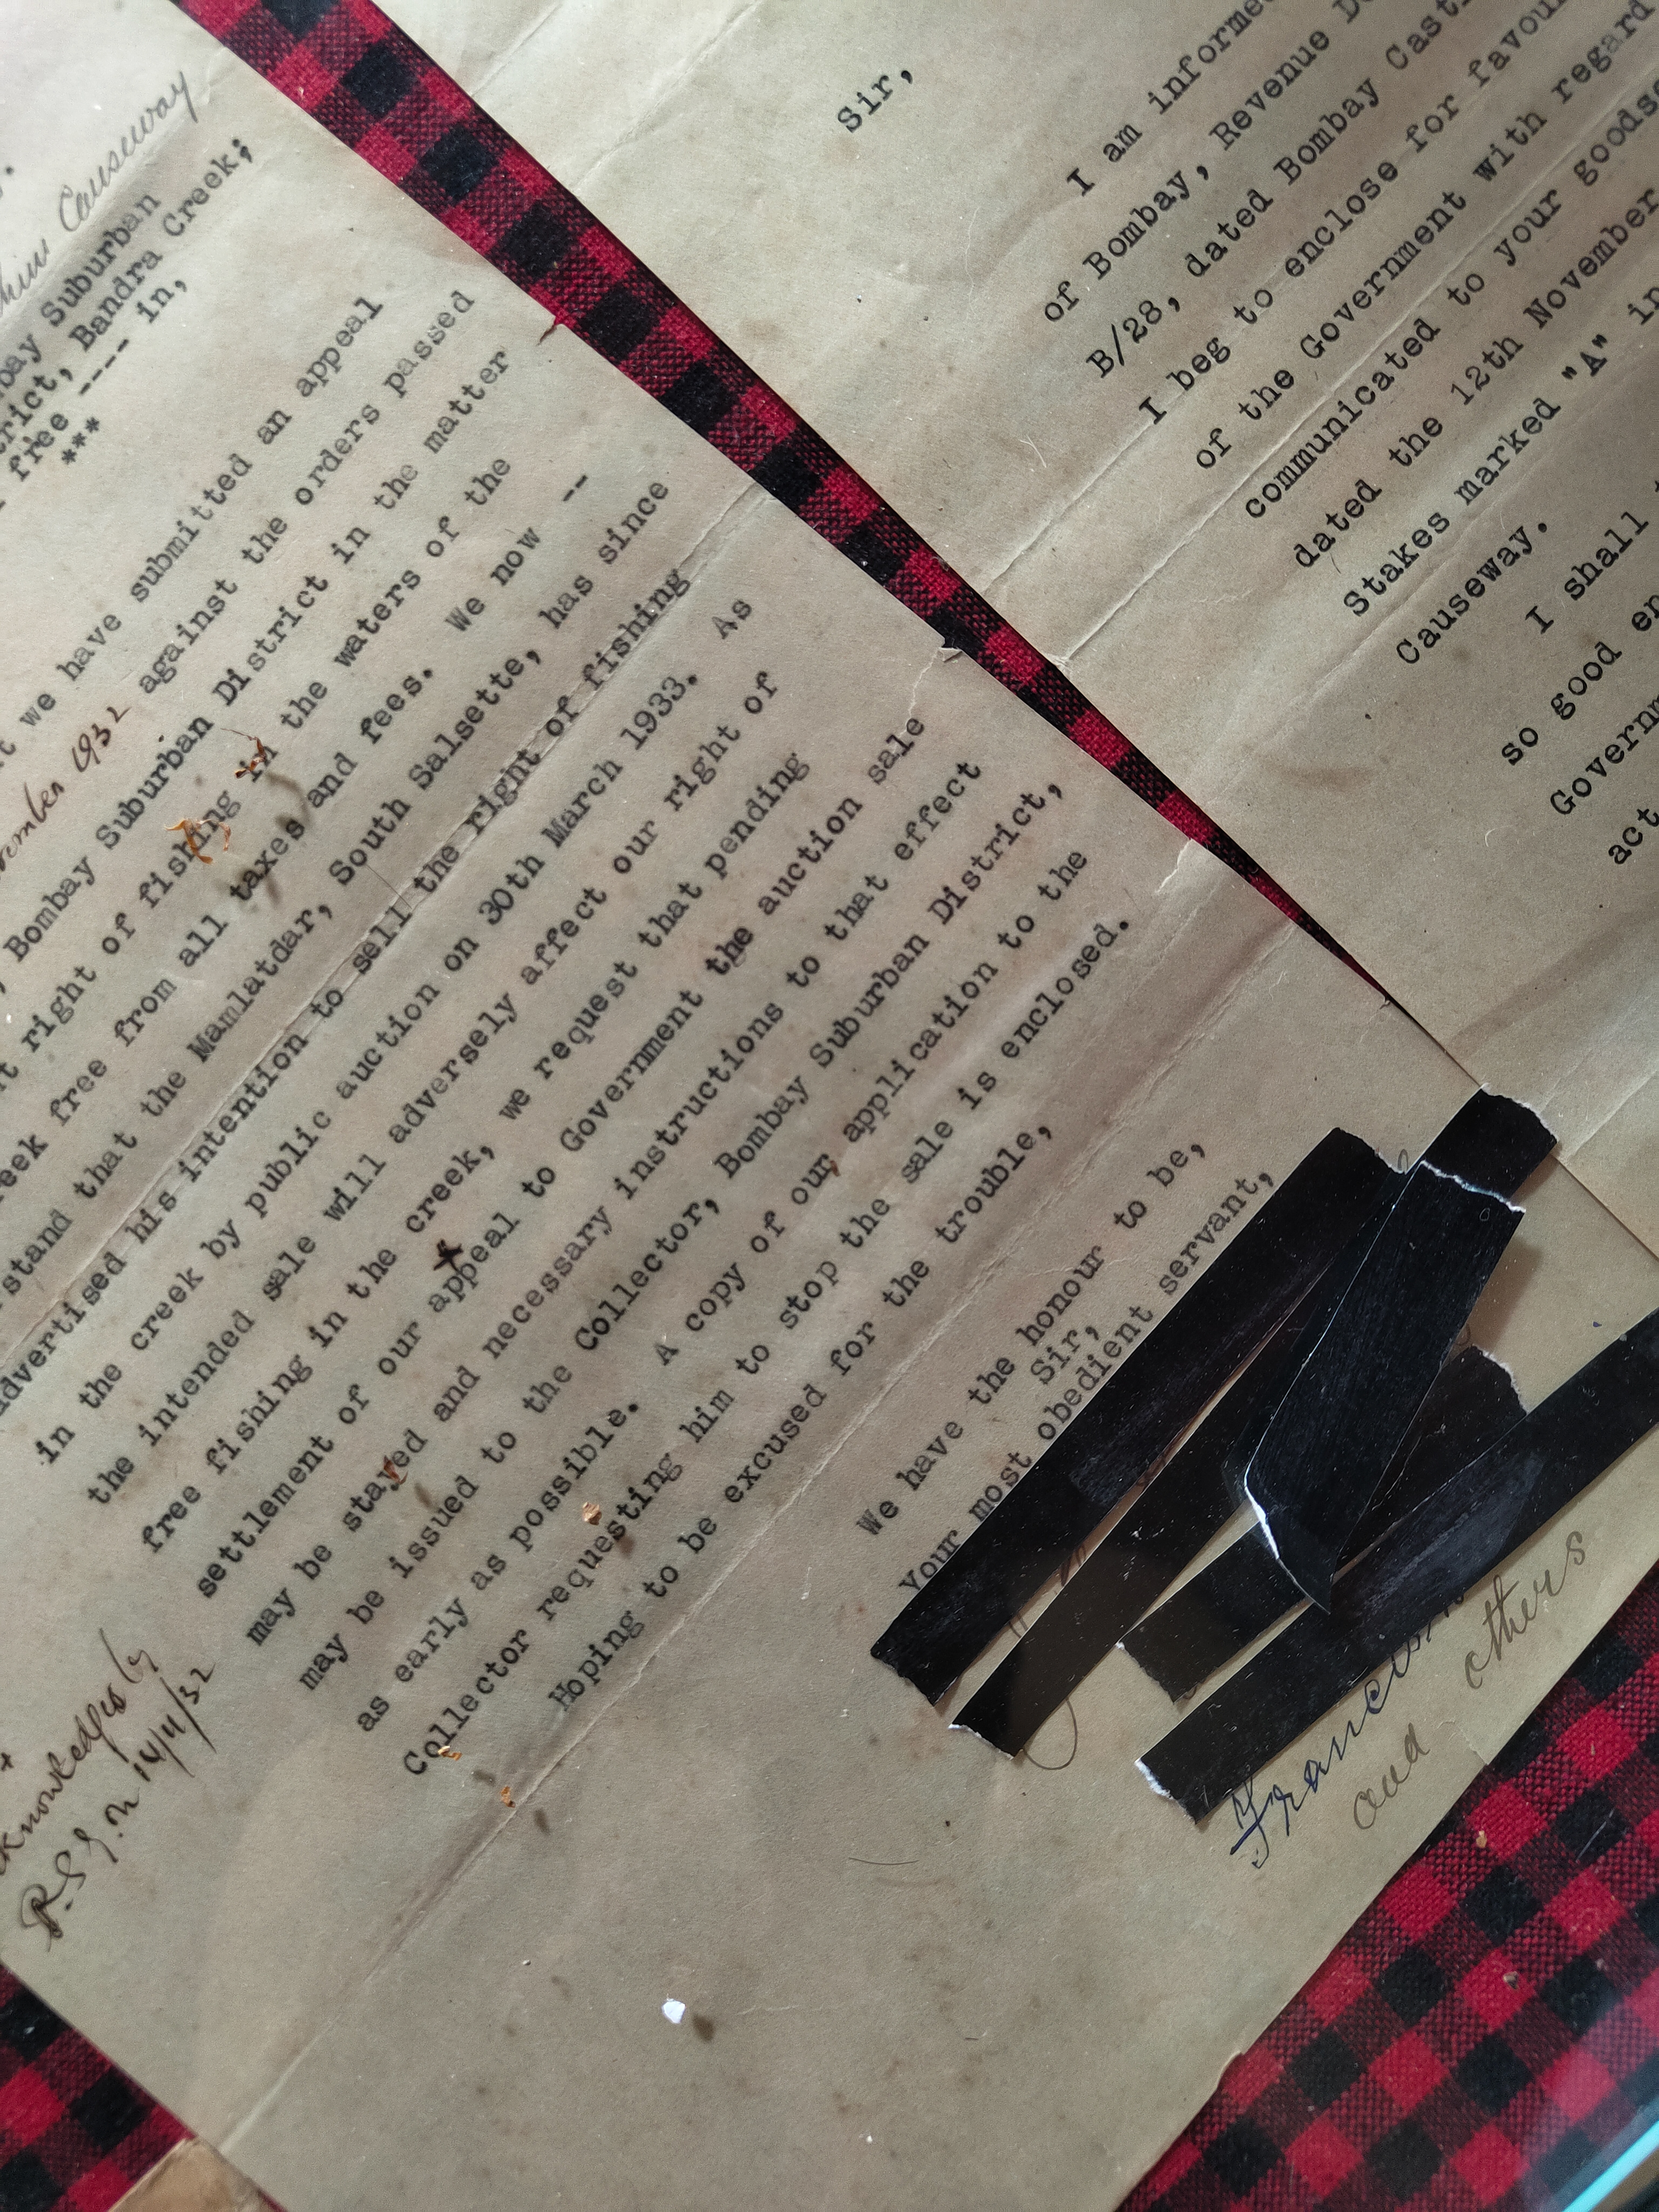 Causeway
Suburban
Bandra Creek;
free ---- in,
***
we have submitted an appeal
1932 against the orders passed
Bombay Suburban District in the matter
right of fishing in the waters of the
free from all taxes and fees. We now --
stand that the Mamlatdar, South Salsette, has since
advertised his intention to sell the right of fishing
in the creek by public auction on 30th March 1933. As
the intended sale will adversely affect our right of
free fishing in the creek, we request that pending
settlement of our appeal to Government the auction sale
may be stayed and necessary instructions to that effect
may be issued to the Collector, Bombay Suburban District,
as early as possible. A copy of our application to the
Collector requesting him to stop the sale is enclosed.
Hoping to be excused for the trouble,
We have the honour to be,
Sir,
Your most obedient servant,
and others
14/11/32
Sir,
I am informed
of Bombay, Revenue
B/28, dated Bombay
I beg to enclose for
of the Government with regard
communicated to your
dated the 12th November
Stakes marked "A" in
Causeway.
I shall
so good
act